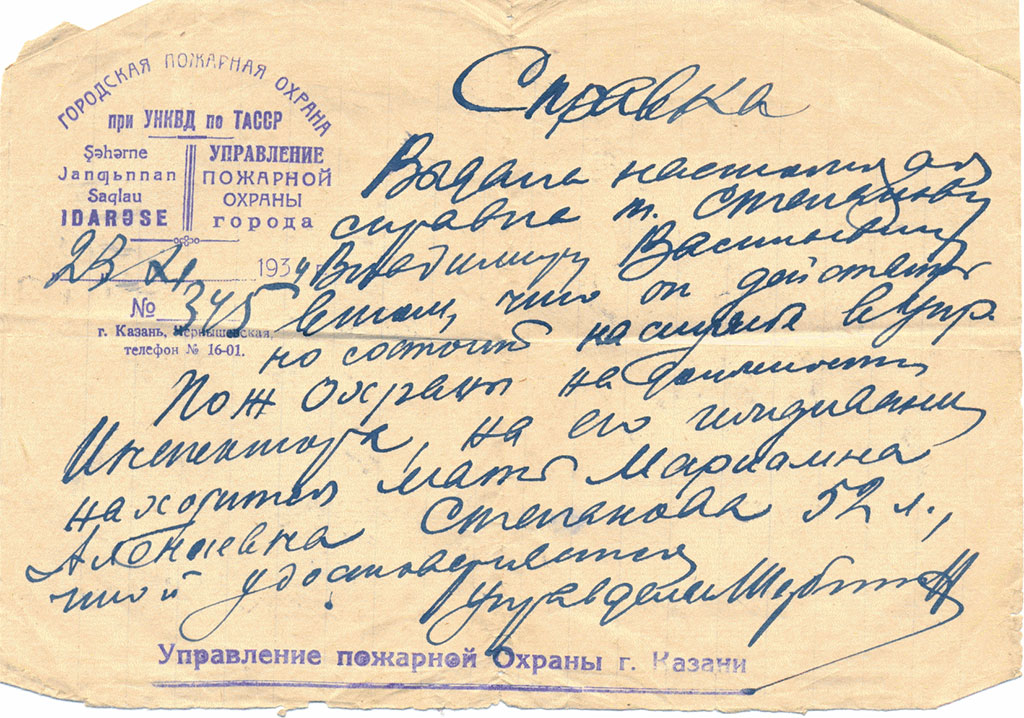 ГОРОДСКАЯ ПОЖАРНАЯ ОХРАНА
при УНКВД по ТАССР
Şəhərne
Janƣьnnan
Saqlau
IDARƏSE
УПРАВЛЕНИЕ
ПОЖАРНОЙ
ОХРАНЫ
города
23 1934 г.
№ 345
г. Казань, Чернышевская,
телефон № 16-01.
Справка
Выдана настоящая
справка т. Степанову
Владимиру Васильевичу
в том, что он действитель
но состоит на службе в Упр.
Пож Охраны на должности
Инспектора, на его иждивении
находится мать Марианна
Степанова 52 л.,
что и удостоверяется
Управделами
Управление пожарной Охраны г. Казани